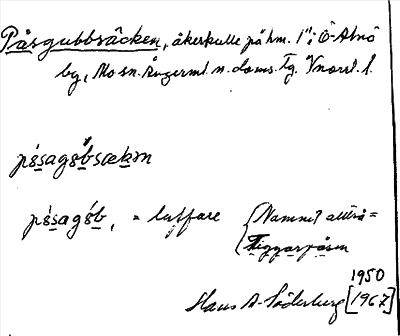 Påsgubbsäcken, åkerkulle på hm. 1" i Ö-Alnö
by, Mo sn. Ångerml. n. doms. Tg. Vnorrl. l.
påsagǿbsækǝn
påsagǿb, = luffare {Namnet alltså =
Tiggarpåsen
1950
Hans A. Söderberg [1967]